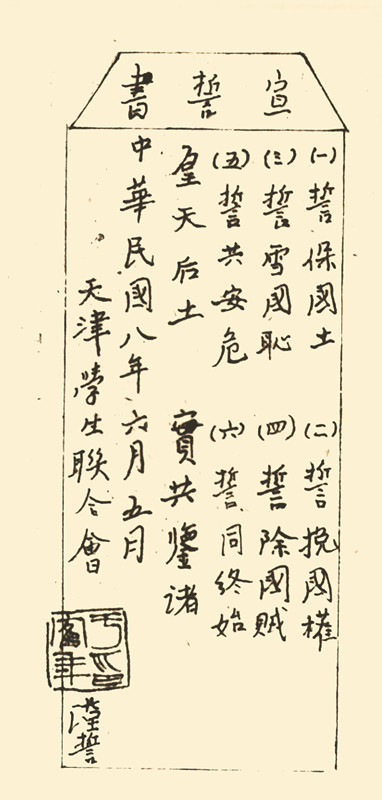 宣誓書
(一)誓保國土 (二)誓挽國權
(三)誓雪國恥 (四)誓除國賊
(五)誓共安危 (六)誓同終始
皇天后土 實共鑒諸
中華民國八年六月五月
天津學生聯合會 謹誓